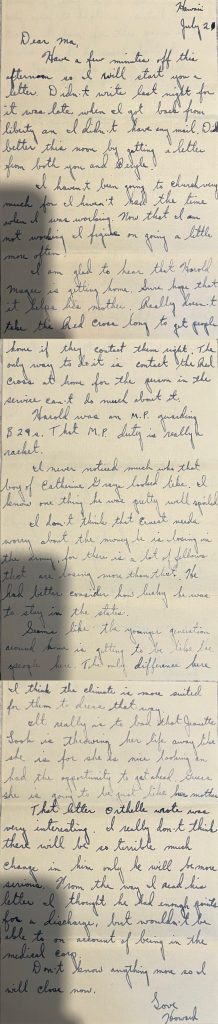 Hawaii
July 21
Dear Ma,
Have a few minutes off this
afternoon so I will start you a
letter. Didn't write last night for
it was late when I got back from
liberty an I didn't have any mail. Did
better this noon by getting a letter
from both you and
I haven't been going to church very
much for I haven't had the time
when I was working. Now that I am
not working I figure on going a little
more often.
I am glad to hear that Harold
Magee is getting home. Sure hope that
it helps his mother. Really doesn't
take the Red Cross long to get people
home if they contact them right. The
only way to do it is contact the Red
Cross at home for the person in the
service can't do much about it.
Harold was an M.P. guarding
B29s. That M.P. duty is really a
racket.
I never noticed much who that
boy of Catherine Grays looked like. I
know one thing he was pretty well spoiled
I don't think that Ernest needs
worry about the money he is losing in
the army for there is a lot of fellows
that are losing more than that. He
had better consider how lucky he was
to stay in the states.
Seems like the younger generation
around home is getting to be like the
people here. The only difference here
I think the climate is more suited
for them to dress that way.
It really is to bad that
is throwing her life away like
she is for she is nice looking an
had the opportunity to get ahead. Guess
she is going to be just like her mother
That letter Orthelle wrote was
very interesting. I really don't think
there will be so terrible much
change in him only he will be more
serious. From the way I read his
letter I thought he had enough points
for a discharge, but wouldn't be
able to on account of being in the
medical corp.
Don't know anything more so I
will close now.
Love
Howard